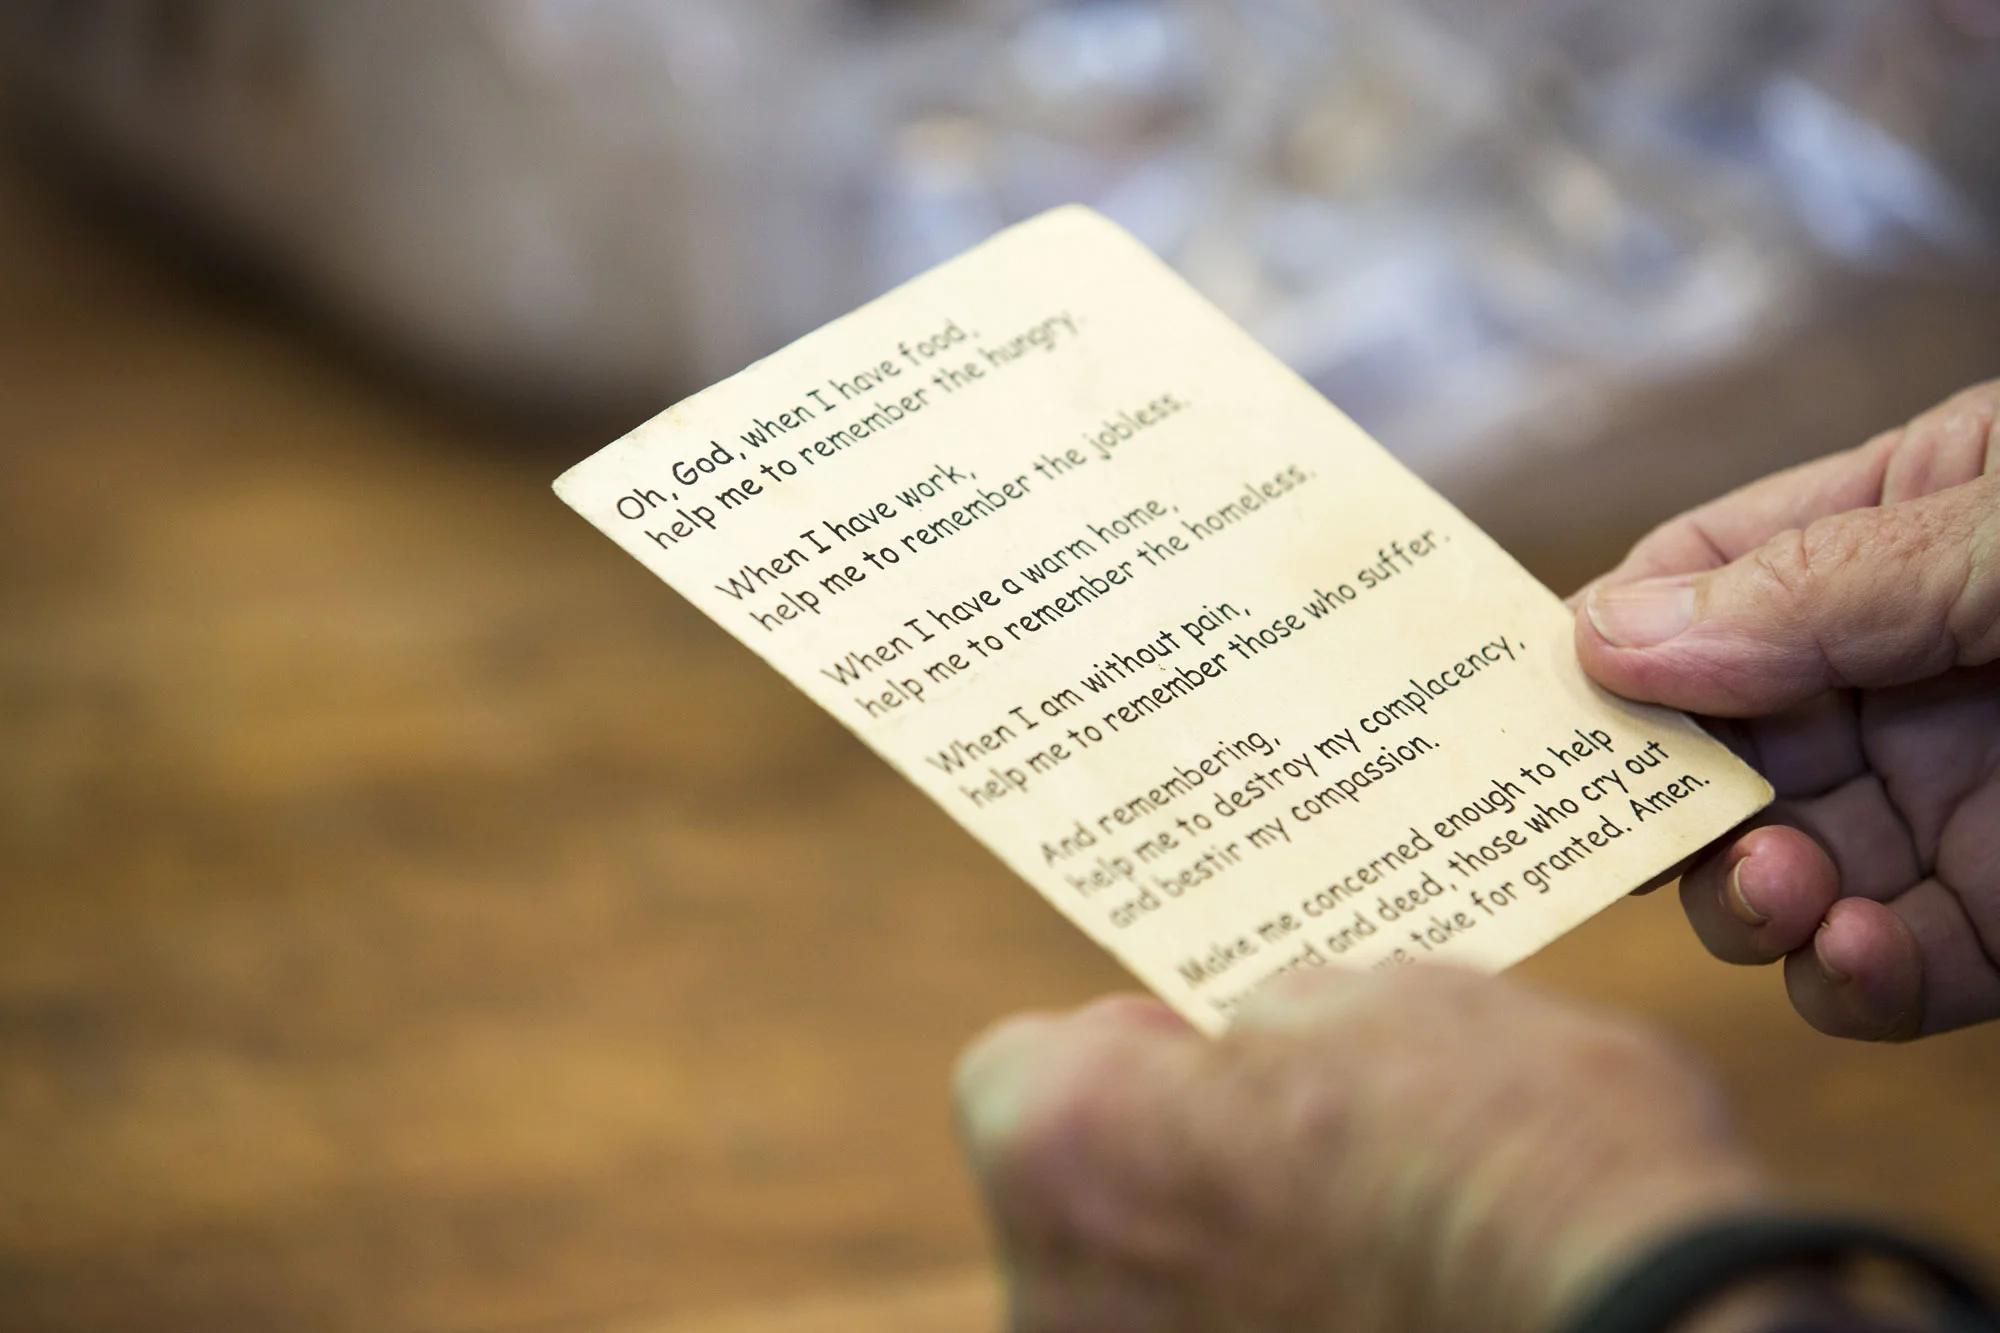 Oh, God, when I have food,
help me to remember the hungry.
When I have work,
help me to remember the jobless.
When I have a warm home,
help me to remember the homeless.
When I am without pain,
help me to remember those who suffer.
And remembering,
help me to destroy my complacency,
and bestir my compassion.
Make me concerned enough to help
and deed, those who cry out
we take for granted. Amen.